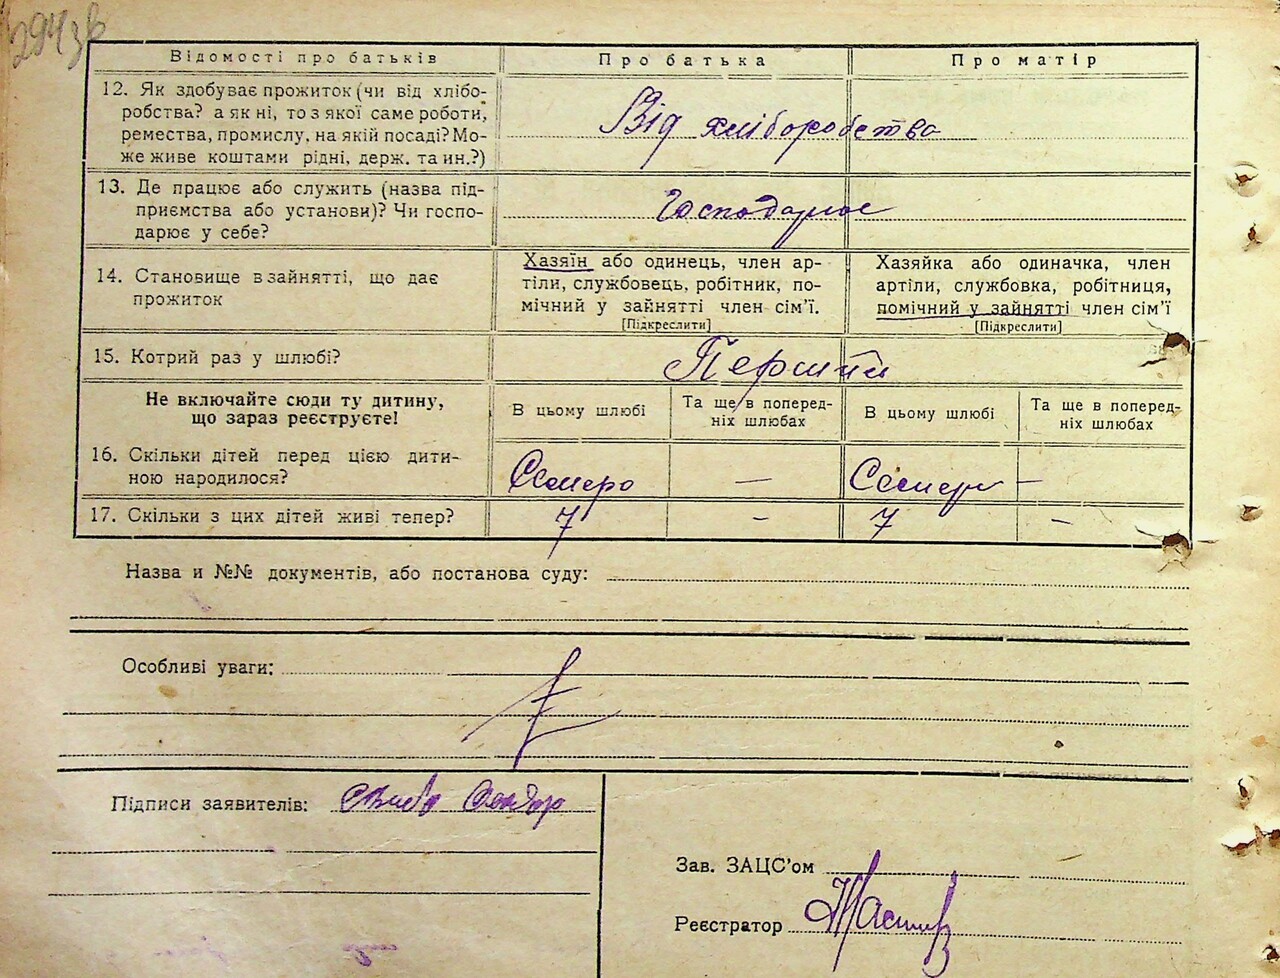 294зв
Відомості про батьків
Про батька
Про матір
12. Як здобуває прожиток (чи від хлібо-
робства? а як ні, то з якої саме роботи,
ремества, промислу, на якій посаді? Мо-
же живе коштами рідні, держ. та ин.?)
Від хліборобства
13. Де працює або служить (назва під-
приємства або установи)? Чи госпо-
дарює у себе?
Господарює
14. Становище в зайнятті, що дає
прожиток
Хазяїн або одинець, член ар-
тіли, службовець, робітник, по-
мічний у зайнятті член сім'ї.
[Підкреслити]
Хазяйка або одиначка, член
артіли, службовка, робітниця,
помічний у зайнятті член сім'ї
[Підкреслити]
15. Котрий раз у шлюбі?
Перший
Не включайте сюди ту дитину,
що зараз реєструєте!
В цьому шлюбі
Та ще в поперед-
ніх шлюбах
В цьому шлюбі
Та ще в поперед-
ніх шлюбах
16. Скільки дітей перед цією дити-
ною народилося?
Семеро — Семеро —
17. Скільки з цих дітей живі тепер?
7 — 7 —
Назва и №№ документів, або постанова суду:
Особливі уваги:
Підписи заявителів:
Зав. ЗАЦС'ом
Реєстратор